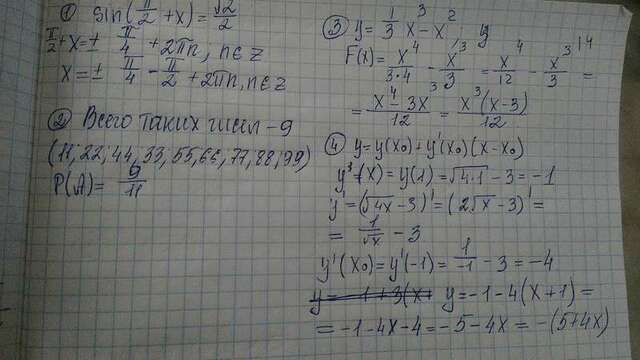 ① sin(π/2 + x) = √2/2
π/2 + x = ± π/4 + 2πn, n∈z
x = ± π/4 - π/2 + 2πn, n∈z
② Всего таких чисел - 9
(11, 22, 44, 33, 55, 66, 77, 88, 99)
P(A) = 9/11
③ y = 1/3 x³ - x²,
F(x) = x⁴/3·4 - x³/3 = x⁴/12 - x³/3 =
= x⁴ - 3x³/12 = x³(x-3)/12
④ y = y(x₀) + y'(x₀)(x - x₀)
(x) = y(1) = √4·1 - 3 = -1
y' = (√4x - 3)' = (2√x - 3)' =
= 1/√x - 3
y'(x₀) = y'(-1) = 1/-1 - 3 = -4
y = -1 - 4(x+1) =
= -1 - 4x - 4 = -5 - 4x = -(5+4x)